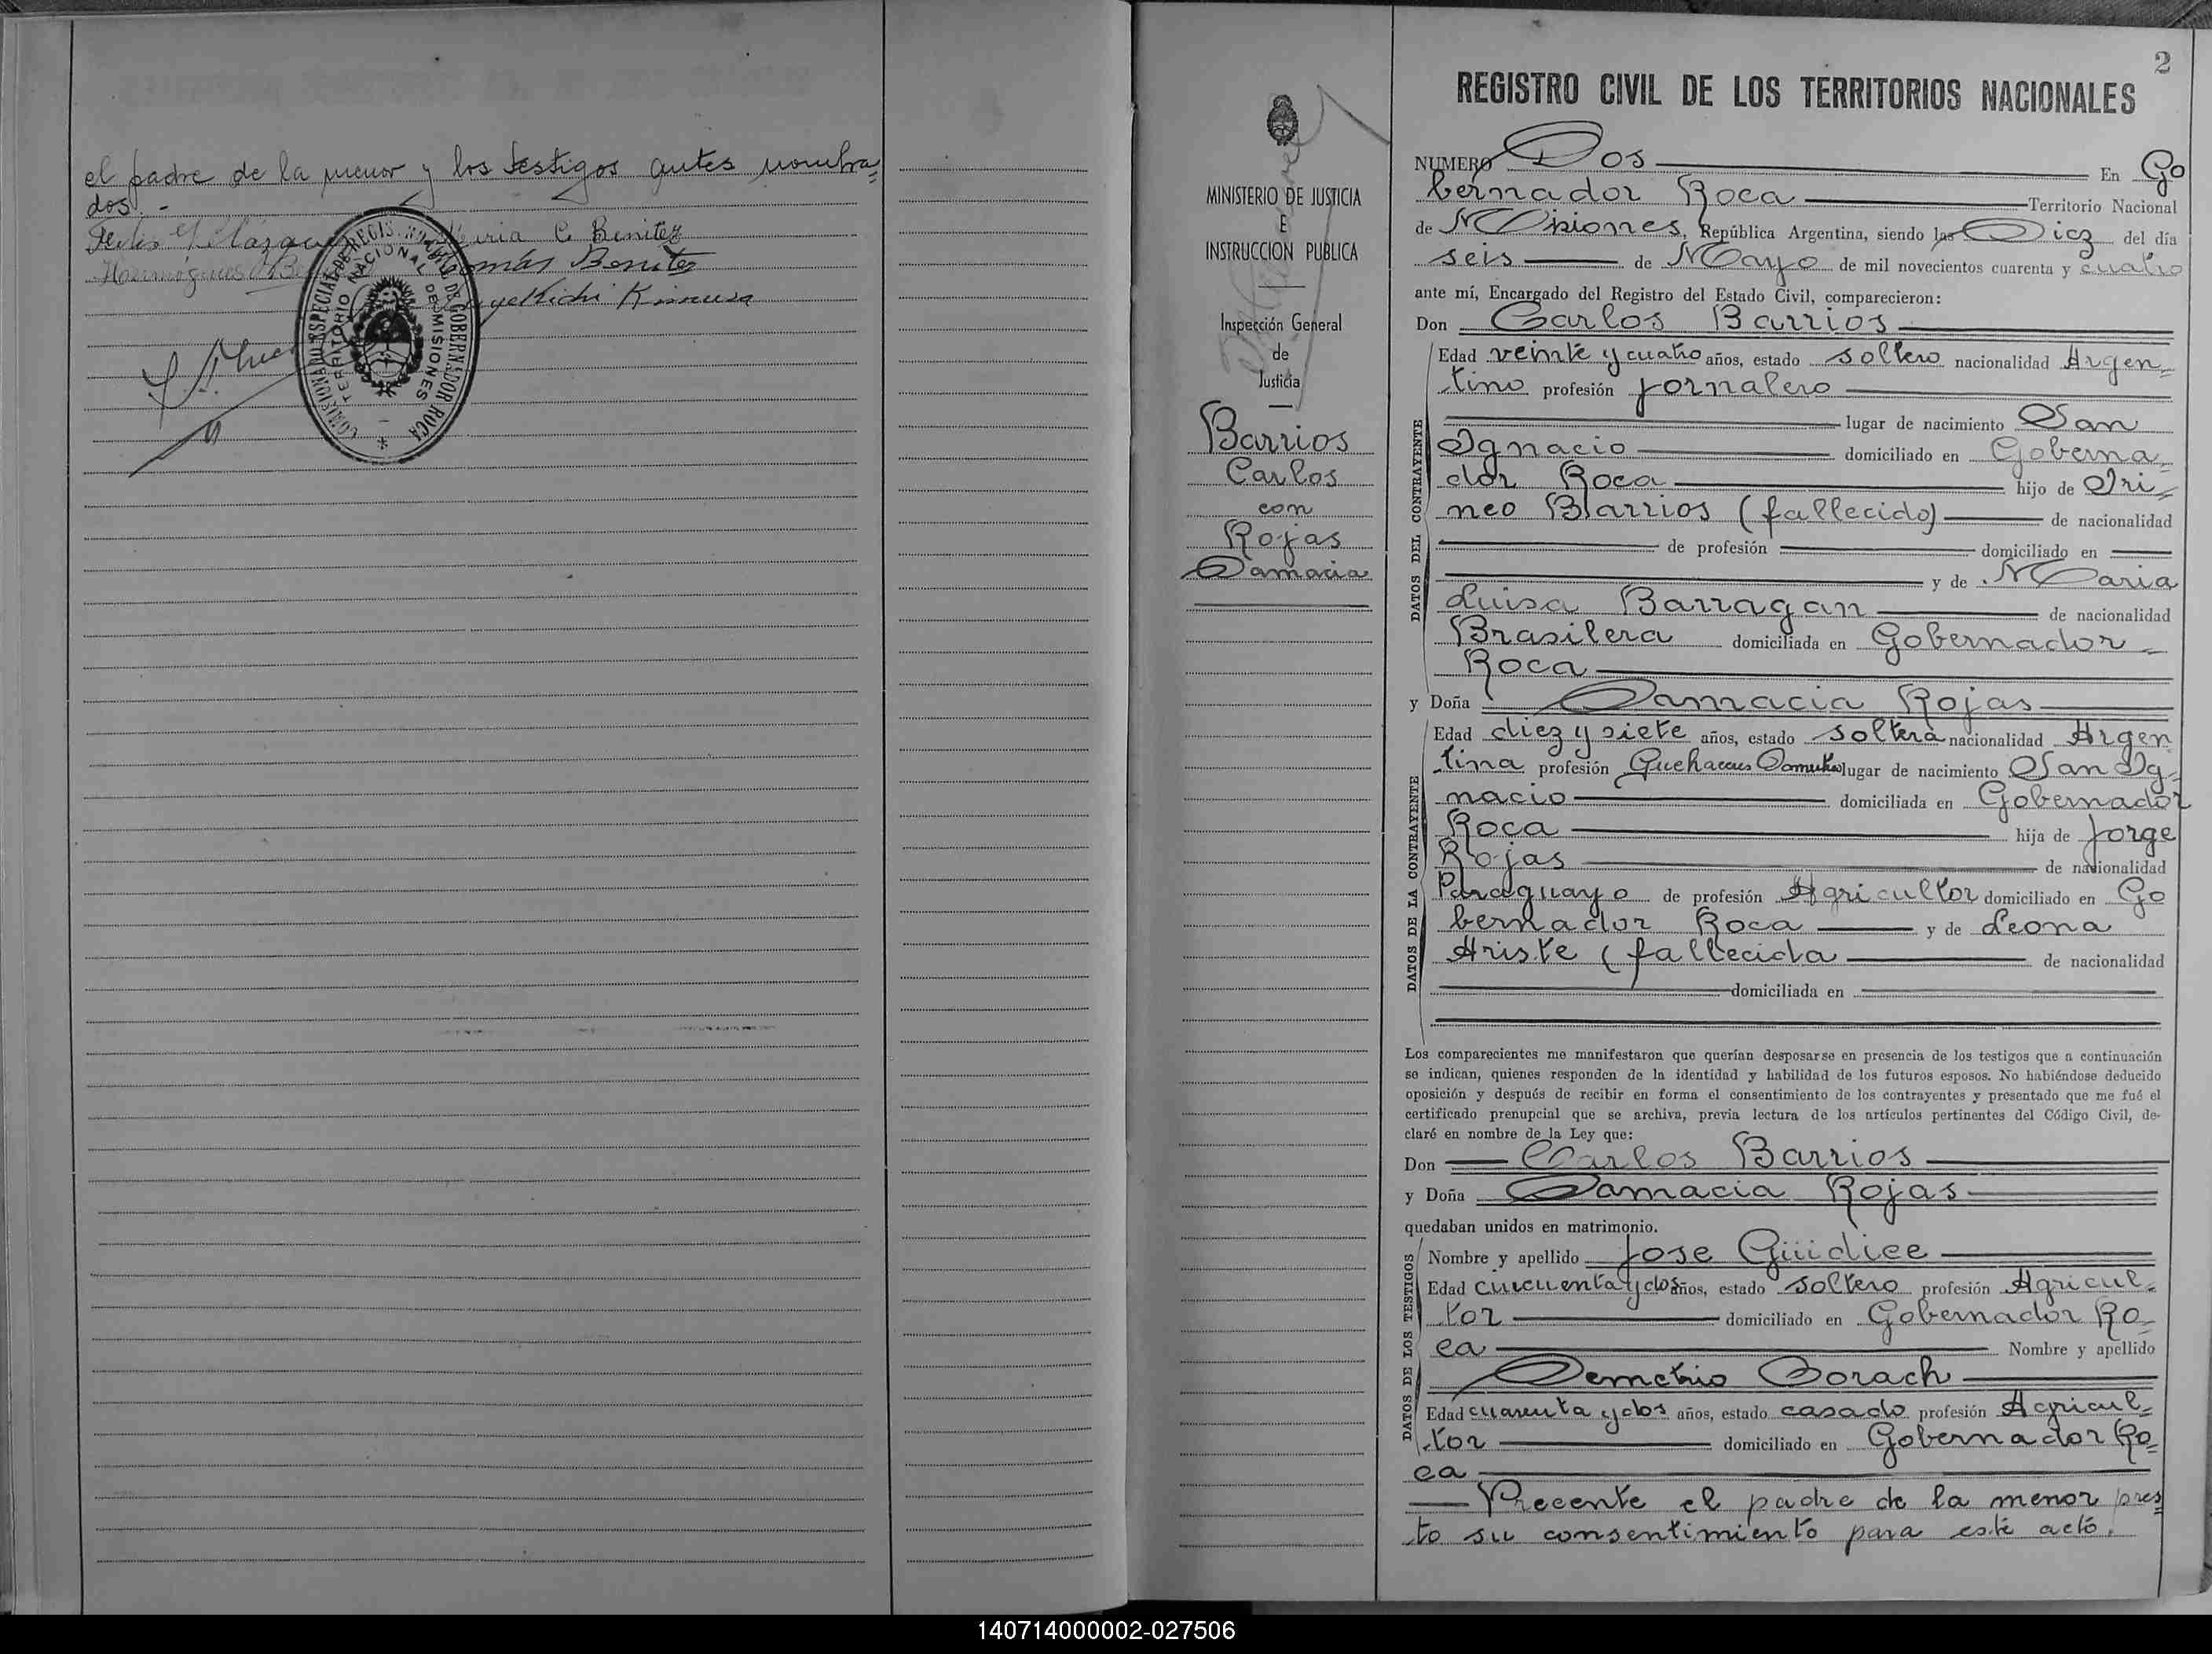 el padre de la menor y los testigos antes nombra=
dos. -
Maria C. Benitez
Tomás Benitez
COMISIONADO ESPECIAL DE REGIS. GOBERNADOR ROCA
TERRITORIO NACIONAL DE MISIONES
MINISTERIO DE JUSTICIA
E
INSTRUCCION PUBLICA
Inspección General
de
Justicia
Barrios
Carlos
con
Rojas
Damacia
2
REGISTRO CIVIL DE LOS TERRITORIOS NACIONALES
NUMERO Dos En Go
bernador Roca Territorio Nacional
de Misiones, República Argentina, siendo las Diez del día
seis de Mayo de mil novecientos cuarenta y cuatro
ante mí, Encargado del Registro del Estado Civil, comparecieron:
Don Carlos Barrios
DATOS DEL CONTRAYENTE
Edad veinte y cuatro años, estado soltero nacionalidad Argen=
tino profesión jornalero
lugar de nacimiento San
Ignacio domiciliado en Goberna=
dor Roca hijo de Iri=
neo Barrios (fallecido) de nacionalidad
de profesión domiciliado en
y de Maria
Luisa Barragan de nacionalidad
Brasilera domiciliada en Gobernador
Roca
y Doña Damacia Rojas
DATOS DE LA CONTRAYENTE
Edad diez y siete años, estado soltera nacionalidad Argen
tina profesión Quehaceres Domesticos lugar de nacimiento San Ig=
nacio domiciliada en Gobernador
Roca hija de Jorge
Rojas de nacionalidad
Paraguayo de profesión Agricultor domiciliado en Go
bernador Roca y de Leona
Ariste (fallecida de nacionalidad
domiciliada en
Los comparecientes me manifestaron que querían desposarse en presencia de los testigos que a continuación
se indican, quienes responden de la identidad y habilidad de los futuros esposos. No habiéndose deducido
oposición y después de recibir en forma el consentimiento de los contrayentes y presentado que me fué el
certificado prenupcial que se archiva, previa lectura de los artículos pertinentes del Código Civil, de-
claré en nombre de la Ley que:
Don Carlos Barrios
y Doña Damacia Rojas
quedaban unidos en matrimonio.
DATOS DE LOS TESTIGOS
Nombre y apellido Jose Güidice
Edad cincuenta y dos años, estado soltero profesión Agricul=
tor domiciliado en Gobernador Ro=
ca Nombre y apellido
Demetrio Borach
Edad cuarenta y dos años, estado casado profesión Agricul=
tor domiciliado en Gobernador Ro=
ca
Precente el padre de la menor pres
to su consentimiento para este acto.
140714000002-027506